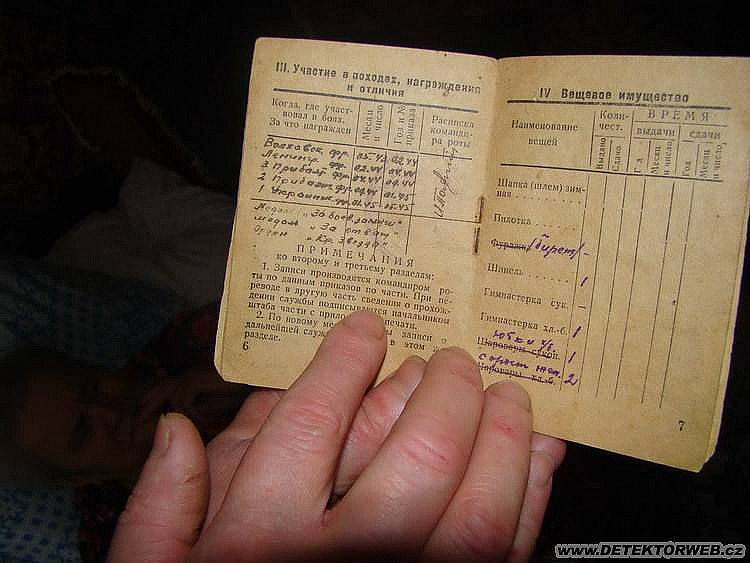 III. Участие в походах, награждения
и отличия
Когда, где участ-
вовал в боях.
За что награжден
Месяц
и число
Год и №
приказа
Расписка
команди-
ра роты
Волховск. фр. 05.42 02.44
Ленингр. фр. 02.44 04.44
3 Прибалт фр. 04.44
2 Прибалт фр. 01.45
1 Украинск фр. 05.45
Медаль „За боев. заслуги"
медаль „За отваг"
Орден „Кр. Звезда"
ПРИМЕЧАНИЯ
ко второму и третьему разделам:
1. Записи производятся командиром ро-
ты по данным приказов по части. При пе-
реводе в другую часть сведения о прохож-
дении службы подписываются начальником
штаба части с печати.
2. По новому записи о
дальнейшей в этом
разделе.
6
IV Вещевое имущество
Наименование
вещей
Коли-
чест.
Выдано
Сдано
ВРЕМЯ
выдачи
сдачи
Год
Месяц
и число
Год
Месяц
и число
Шапка (шлем) зим-
няя
Пилотка
Фуражк /берет/ -
Шинель 1
Гимнастерка сук. -
Гимнастерка хл.-б. 1
юбки х/б
Шаровары сукон. 1
Шаровары хл.-б. 2
7
WWW.DETEKTORWEB.CZ